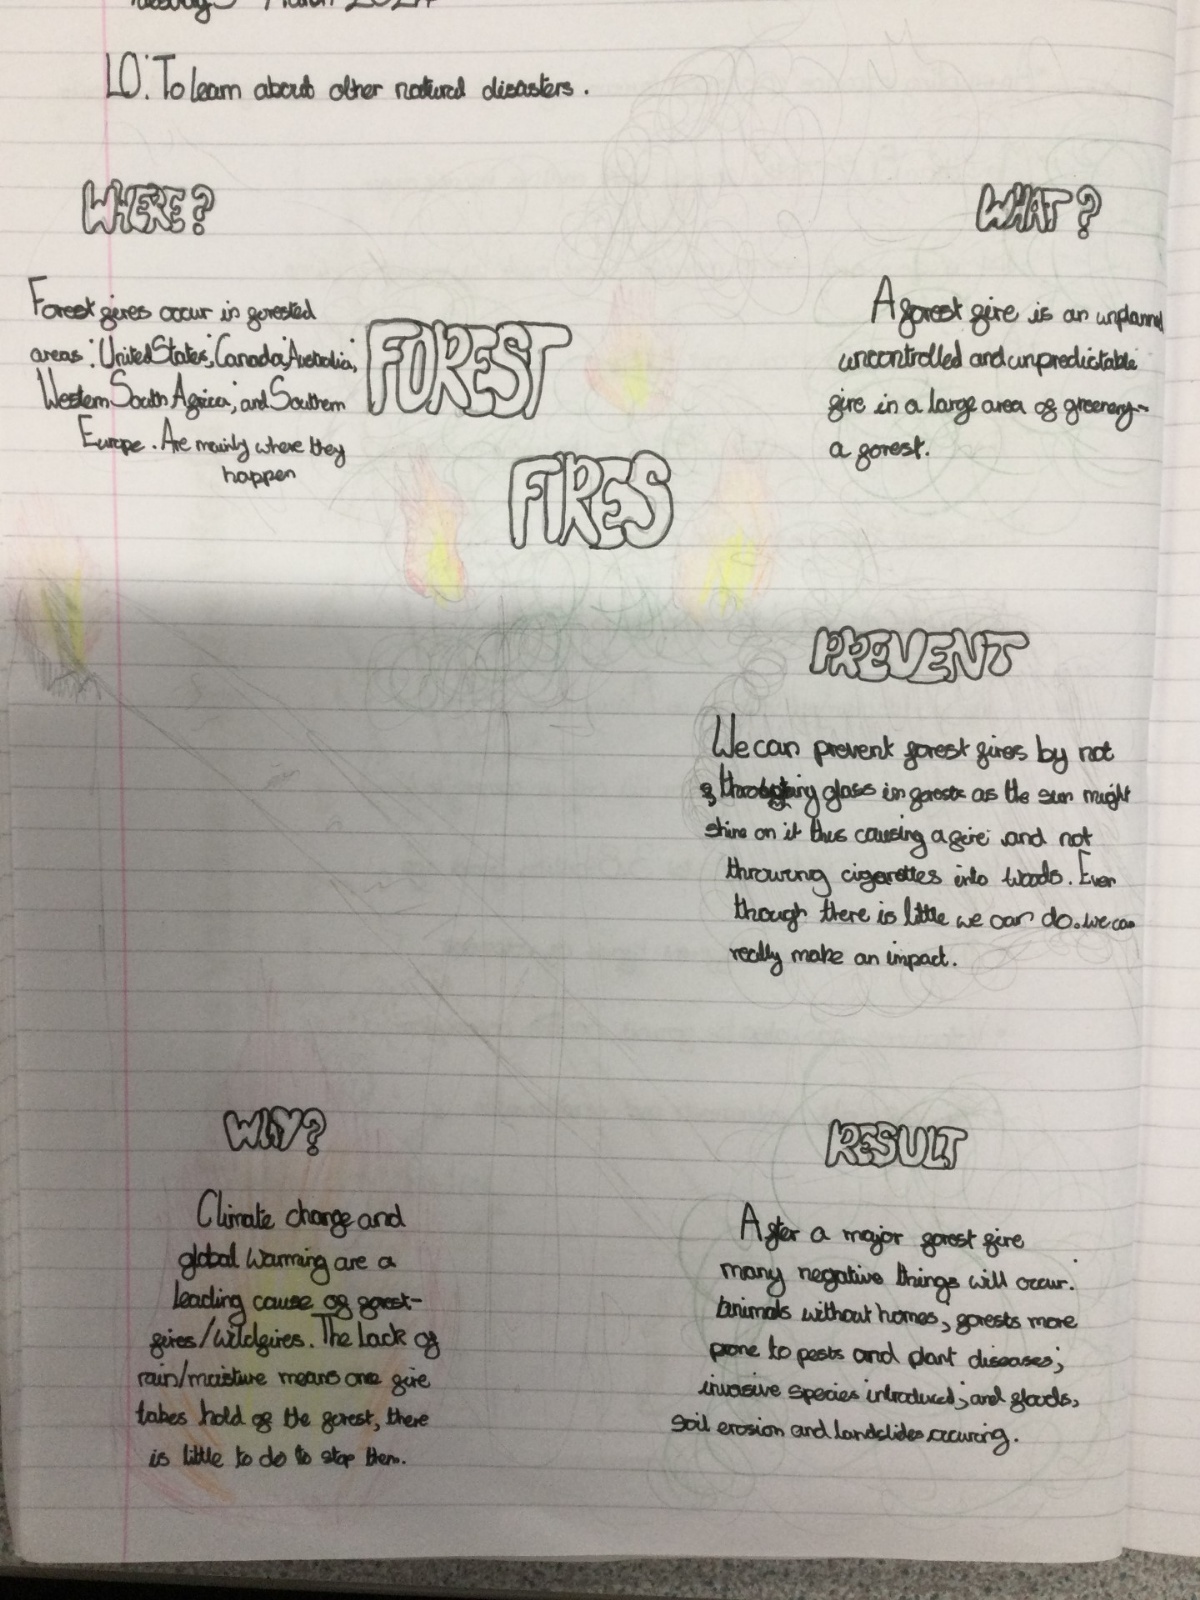 Tuesday 5 March 2024
LO: To learn about other natural disasters.
WHERE?
Forest fires occur in forested
areas: United States; Canada; Australia;
Western South Africa; and Southern
Europe. Are mainly where they
happen
FOREST
FIRES
WHAT?
A forest fire is an unplanned
uncontrolled and unpredictable
fire in a large area of greenery-
a forest.
PREVENT
We can prevent forest fires by not
throwing glass in forests as the sun might
shine on it thus causing a fire; and not
throwing cigarettes into woods. Even
though there is little we can do. we can
really make an impact.
WHY?
Climate change and
global warming are a
leading cause of forest-
fires/wildfires. The lack of
rain/moisture means one fire
takes hold of the forest, there
is little to do to stop them.
RESULT
After a major forest fire
many negative things will occur:
animals without homes; forests more
prone to pests and plant diseases;
invasive species introduced; and floods,
soil erosion and landslides occuring.